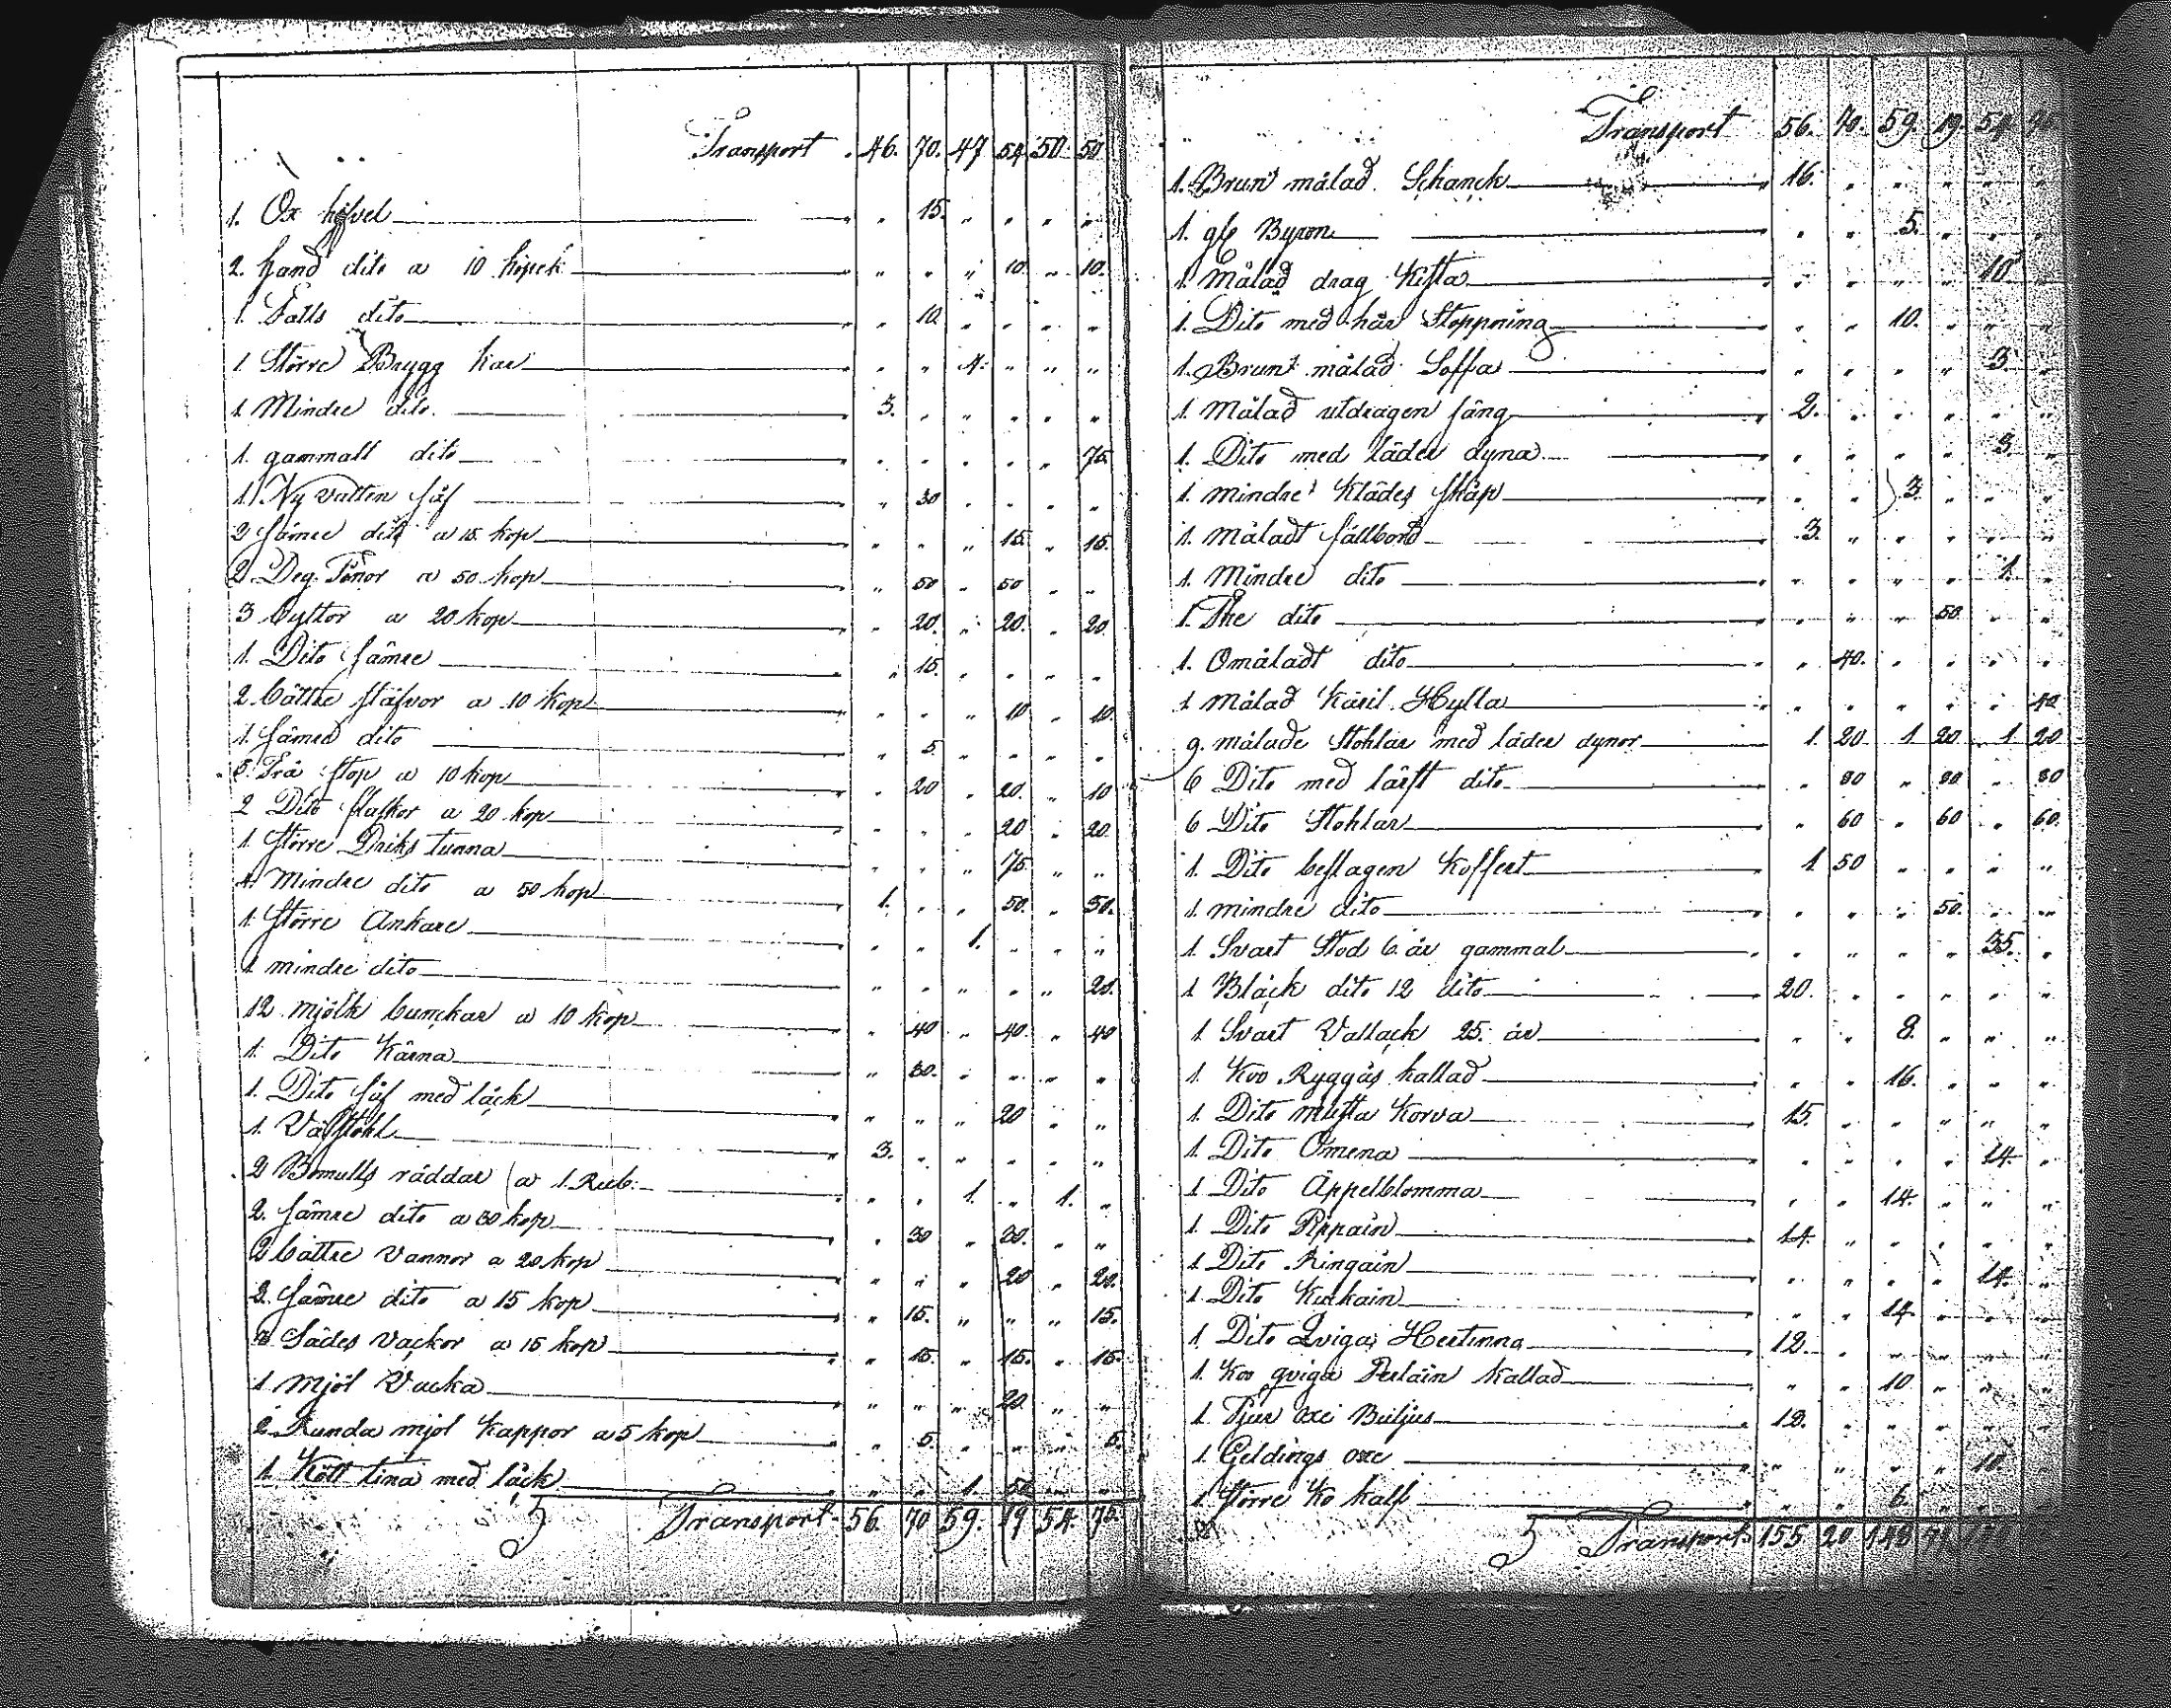 Transport . 46. 70. 47 54 50 50
1. Ox hofvel " 15. " " " "
2. hand dito a 10 kopek " " " 10. " 10.
1. Falts dito " 10. " " " "
1 Större Brygg kar " " 4. " " "
1. Mindre dito 3. " " " " "
1. gammalt dito " " " " " 75
1. Ny vatten såf " 30 " " " "
2 sämre dito a 15 kop " " " 15. " 15.
2 Deg Tönor a 50 kop " 50 " 50 " "
3 byttor a 20 kop " 20. " 20. " 20
1. Dito sämre " 15. " " " "
2. bättre stäfvor a 10 kop " " " 10 " 10.
1. sämre dito " 5. " " " "
5. Trä stop a 10 kop " 20 " 20. " 10
2 Dito flaskor a 20 kop " " " 20 " 20.
1. större Driks tunna " " " 75. " "
4. mindre dito a 50 kop 1. " " 50. " 50.
1. större Ankare " " 1. " " "
1 mindre dito " " " " " 20.
12. mjölk bunckar a 10 kop " 40 " 40. " 40
1. Dito Kärna " 30. " " " "
1. Dito såf med låck " " " 20 " "
1. Väfstohl 3. " " " " "
2 Bomulls räddar a 1. Rub. " " 1. " 1. "
2. sämre dito a 30 kop " 30 " 30. " "
2 bättre vannor a 20 kop " " " 20 " 20.
2. sämre dito a 15 kop " 15. " " " 15.
3 Sädes vackor a 15 kop " 15. " 15. " 15.
1 Mjöl Vacka " " " 20. " "
2 Runda mjöl kappor a 5 kop " 5. " " " 5.
1. Kött tina med låck " " 1. 50 " "
Transport 56. 70 59. 19 54. 75.
Transport 56. 70. 59. 19. 54
1. Brun målad Schanck 16. " " " " "
1. gl Byron " " 5. " " "
1. Målad drag Kista " " " " 10 "
1. Dito med hår Stoppning " " 10. " " "
1. Brunt målad Soffa " " " " 3. "
1. Målad utdragen säng 2. " " " " "
1. Dito med läder dyna " " " " 3. "
1. mindre Klädes skåp " " 3. " " "
1. Måladt fällbord 3. " " " " "
1. Mindre dito " " " " 1. "
1. The dito " " " 50. " "
1. Omåladt dito " 40. " " " "
1 målad Käril Hylla " " " " " 40
9. målade Stohlar med läder dynor 1. 20 1 20 1 20
6 Dito med lärft dito " 80 " 80 " 80
6 Dito Stohlar " 60 " 60 " 60.
1. Dito beslagen Koffert 1 50 " " " "
1. mindre dito " " " 50. " "
1. Svart Stod 6 år gammal " " " " 35. "
1 Bläck dito 12 dito 20. " " " " "
1 Svart Vallack 25. år " " 8. " " "
1. Koo Ryggäs kallad " " 16. " " "
1. Dito musta Korva 15. " " " " "
1. Dito Omena " " " " 14. "
1 Dito Äppelblomma " " 14. " " "
1 Dito Pippain 14. " " " " "
1 Dito Ringain " " " " 14. "
1. Dito Kukain " " 14. " " "
1 Dito Qviga Hertinna 12. " " " " "
1. Koo qviga Perläin kallad " " 10 " " "
1 Tjur oxe Buljus 12. " " " " "
1 Geldings oxe " " " " 10. "
1 större Ko kalf " " 6. " " "
Transport 155 20 148